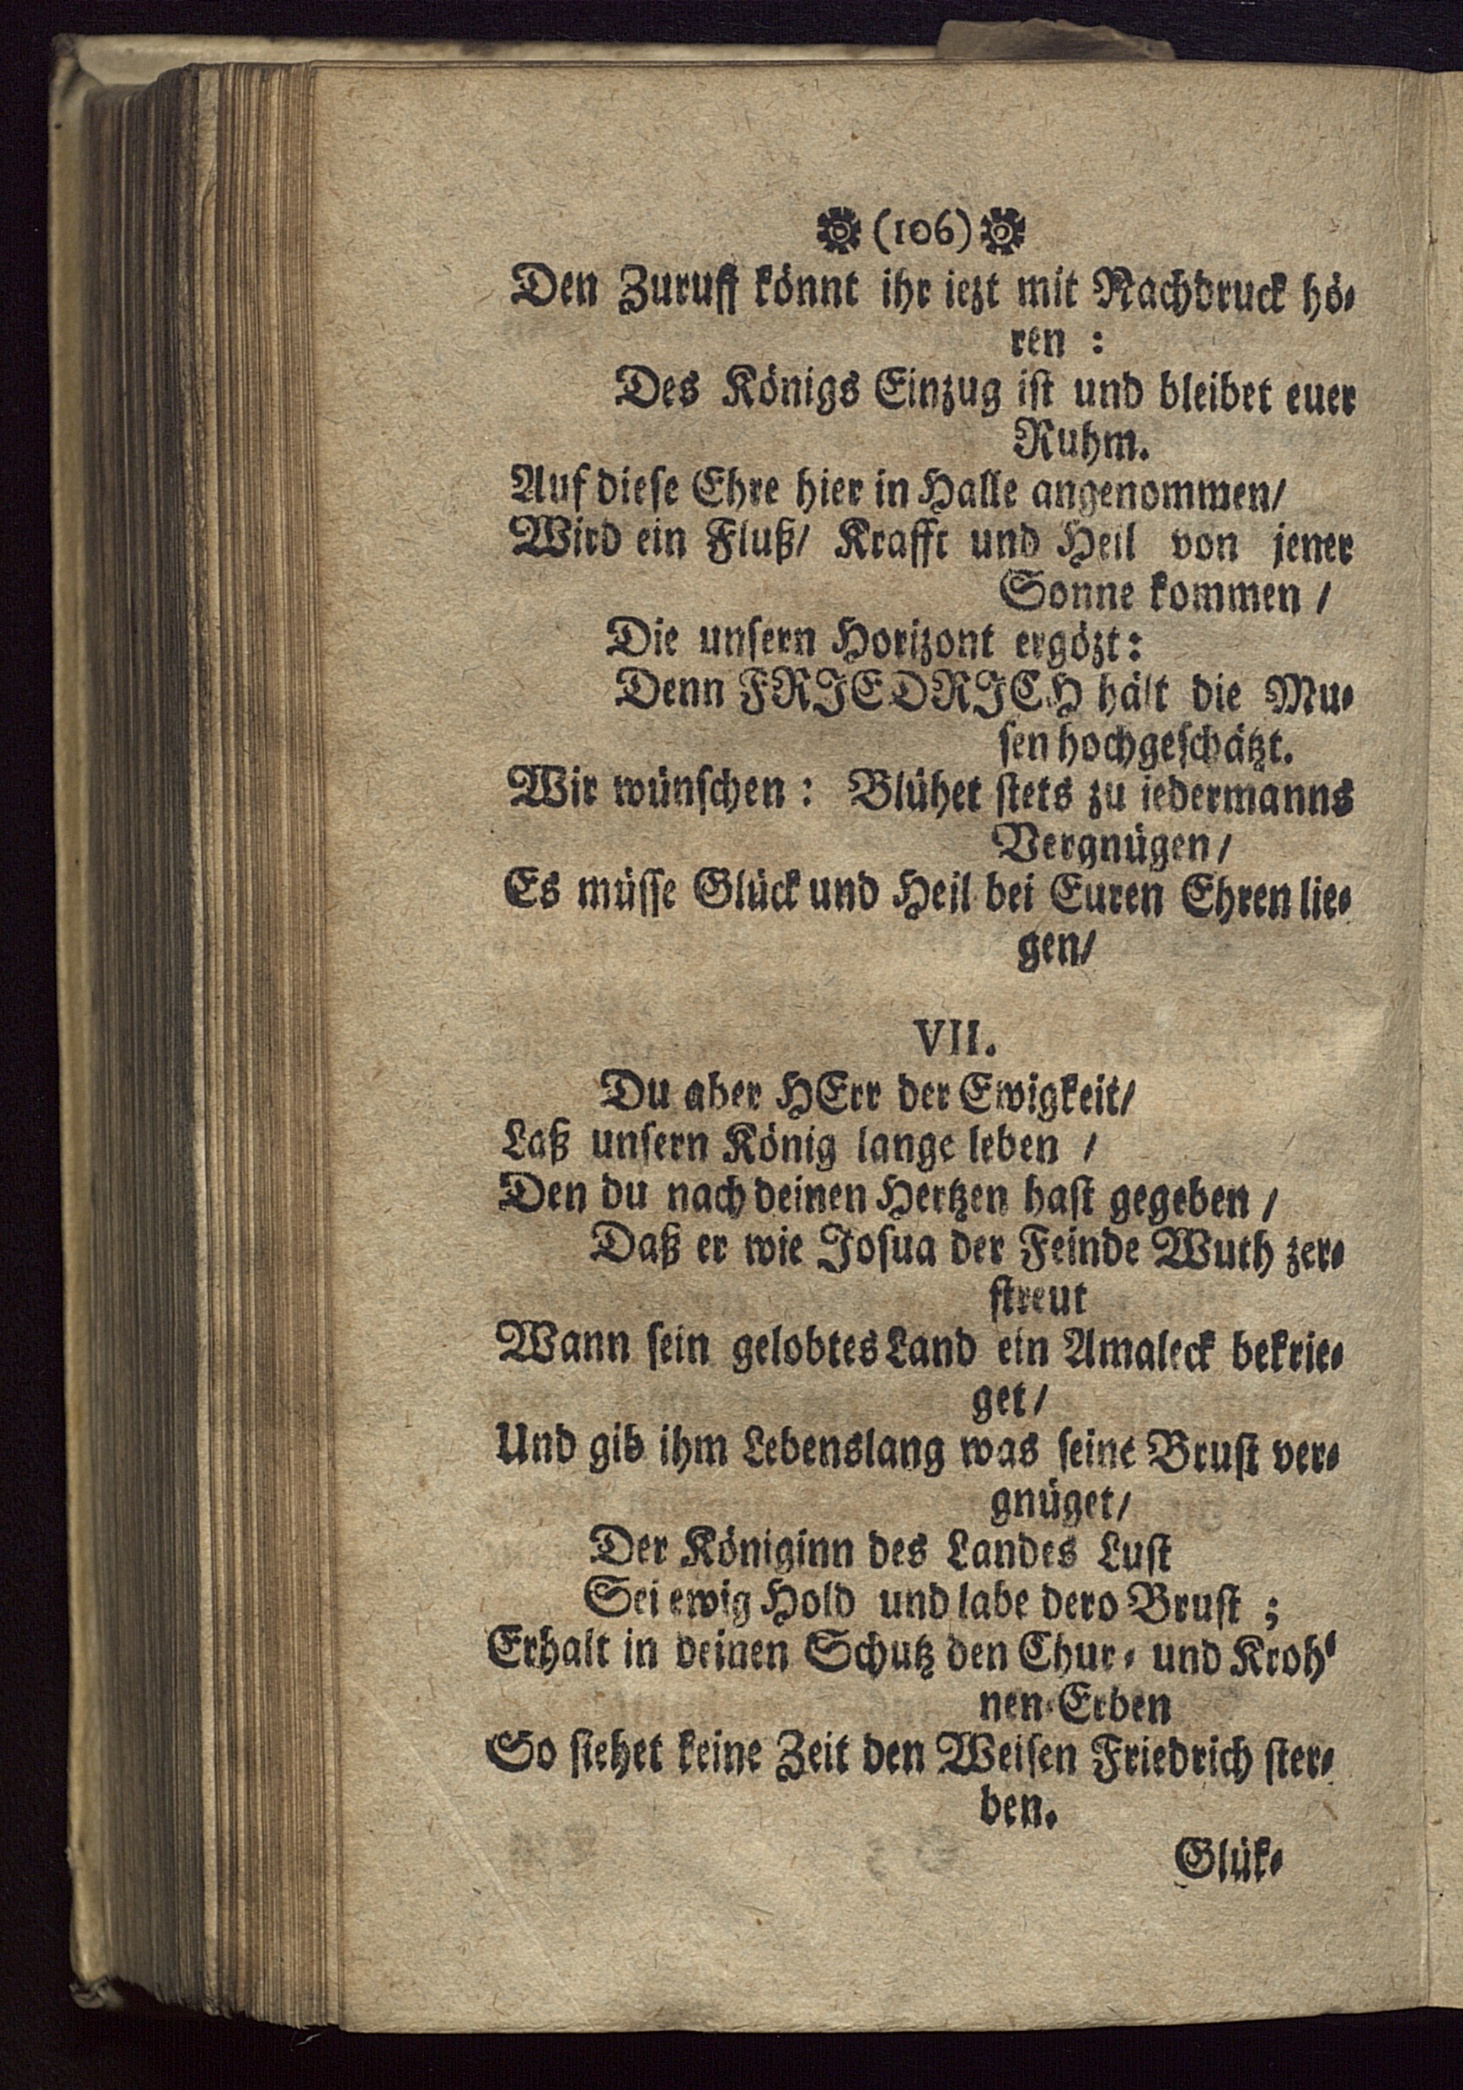 (106)
Den Zuruff könnt ihr iezt mit Nachdruck hö-
ren :
Des Königs Einzug ist und bleibet euer
Ruhm.
Auf diese Ehre hier in Halle angenommen/
Wird ein Fluß/ Krafft und Heil von jener
Sonne kommen /
Die unsern Horizont ergözt:
Denn FRIEDRICH hält die Mu-
sen hochgeschätzt.
Wir wünschen : Blühet stets zu iedermanns
Vergnügen/
Es müsse Glück und Heil bei Euren Ehren lie-
gen/
VII.
Du aber HErr der Ewigkeit/
Laß unsern König lange leben /
Den du nach deinen Hertzen hast gegeben /
Daß er wie Josua der Feinde Wuth zer-
streut
Wann sein gelobtes Land ein Amaleck bekrie-
get/
Und gib ihm Lebenslang was seine Brust ver-
gnüget/
Der Königinn des Landes Lust
Sei ewig Hold und labe dero Brust ;
Erhalt in deinen Schutz den Chur- und Kroh-
nen-Erben
So siehet keine Zeit den Weisen Friedrich ster-
ben.
Glük-